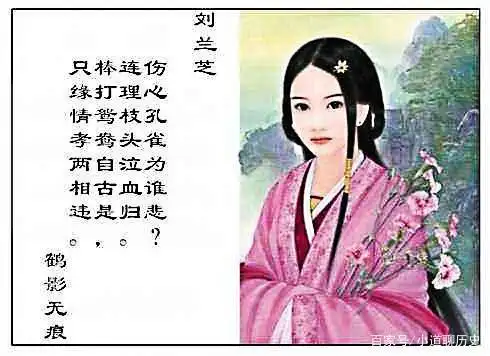 刘兰芝
伤心孔雀为谁悲？
连理枝头泣血归。
棒打鸳鸯自古是，
只缘情孝两相违。
鹤影无痕
百家号/小道聊历史